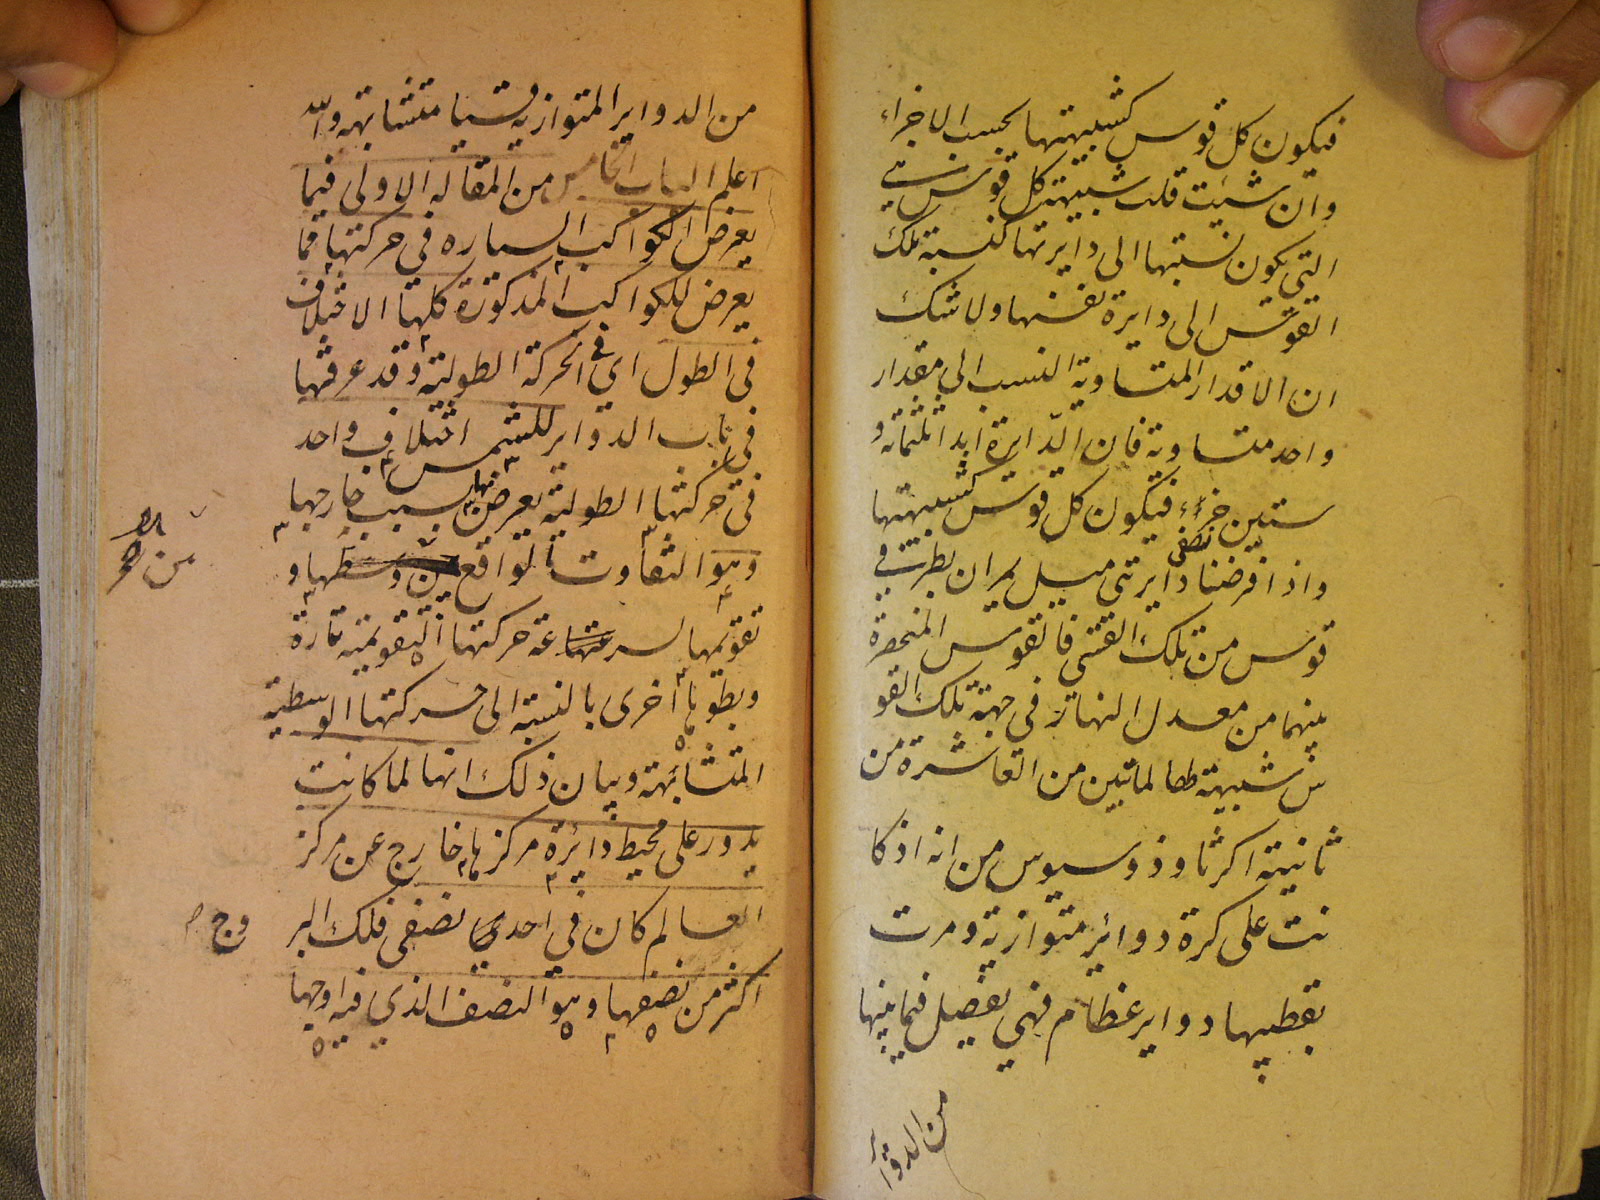 فيكون كل قوس كشبيهتها بحسب الاجزاء
وان شئيت قلت شبيهة كل قوس هي
التي يكون نسبتها الى دايرتها كنسبة تلك
القوس الى دايرة نفسها ولا شك
ان الاقدار المتساوية النسب الى مقدار
واحد متساوية فان الدايرة ابدا ثلثمائة و
ستين جزء فيكون كل قوس كشبيهتها
واذا فرضنا نصفى دايرتى ميل يمران بطرفى
قوس من تلك القسى فالقوس المنحصرة
بينهما من معدل النهار فى جهة تلك القو
س شبيهة لما تبين من العاشرة من
ثانية اكر ثاوذوسيوس من انه اذ كا
نت على كرة دوائر متوازية ومرت
بقطبيها دواير عظام فهي يفصل فيما بينها
من الدوائر
من الدواير المتوازية قسيا متشابهة والله
اعلم الباب الخامس من المقالة الاولى فيما
يعرض الكواكب السياره في حركتها فما
يعرض للكواكب المذكورة كلها الاختلاف
فى الطول اي في الحركة الطولية وقد عرفتها
في باب الدواير للشمس اختلاف واحد
في حركتها الطولية يعرض لها بسبب خارجها
وهو التفاوت الواقع بين وسطها و
تقويمها لسرعة حركتها التقويمية تارة
وبطوها اخرى بالنسبة الى حركتها الوسطية
المتشابهة وبيان ذلك انها لما كانت
يدور على محيط دائرة مركزها خارج عن مركز
العالم كان في احدي نصفى فلك البر
وج
اكثر من نصفها وهو النصف الذي فيه اوجها